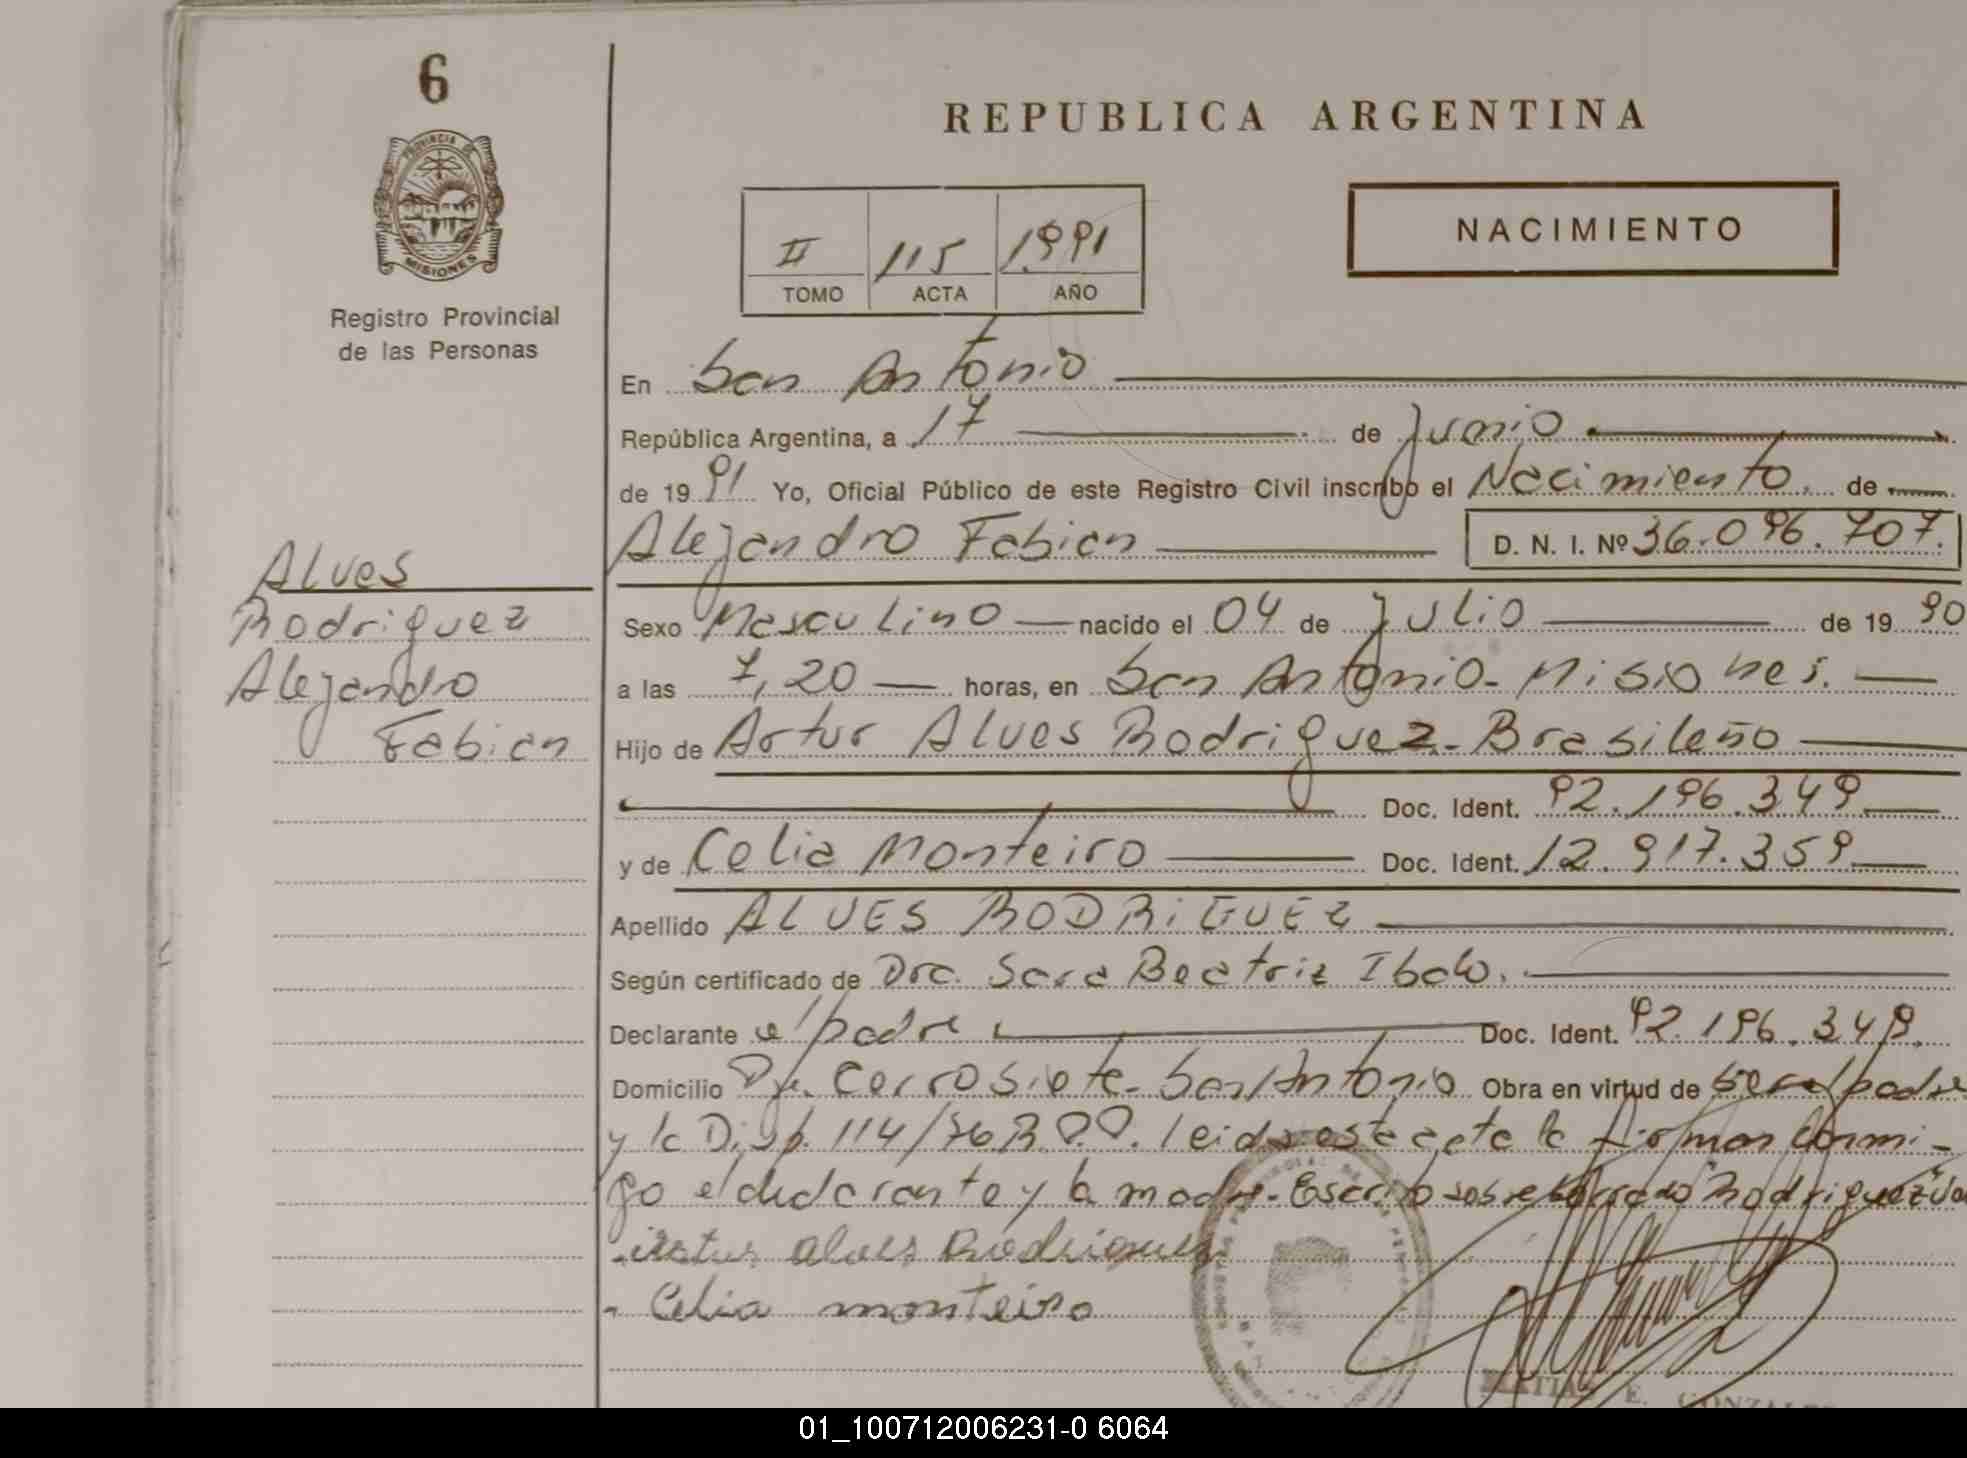 6
PROVINCIA DE
MISIONES
Registro Provincial
de las Personas
REPUBLICA ARGENTINA
II 115 1991
TOMO ACTA AÑO
NACIMIENTO
En San Antonio
República Argentina, a 17 de Junio
de 1991 Yo, Oficial Público de este Registro Civil inscribo el Nacimiento. de
Alejandro Fabian D. N. I. Nº 36.096.707.
Alves
Rodriguez
Alejandro
Fabian
Sexo Masculino nacido el 04 de Julio de 1990
a las 7,20 horas, en San Antonio- Misiones.
Hijo de Artur Alves Rodriguez- Brasileño
Doc. Ident. 92.196.349
y de Celia Monteiro Doc. Ident. 12.917.359
Apellido ALVES RODRIGUEZ
Según certificado de Dra. Sara Beatriz
Declarante el padre Doc. Ident. 92.196.349.
Domicilio Cerro Siete- San Antonio Obra en virtud de ser el padre
y la Disp. 114/76 leida este acta la firman conmi-
go el declarante y la madre- Escrito sobre borrado "Rodriguez" Va
Artur alves Rodrigues
- Celia monteiro
MATIAS E. GONZALEZ
01_100712006231-0 6064